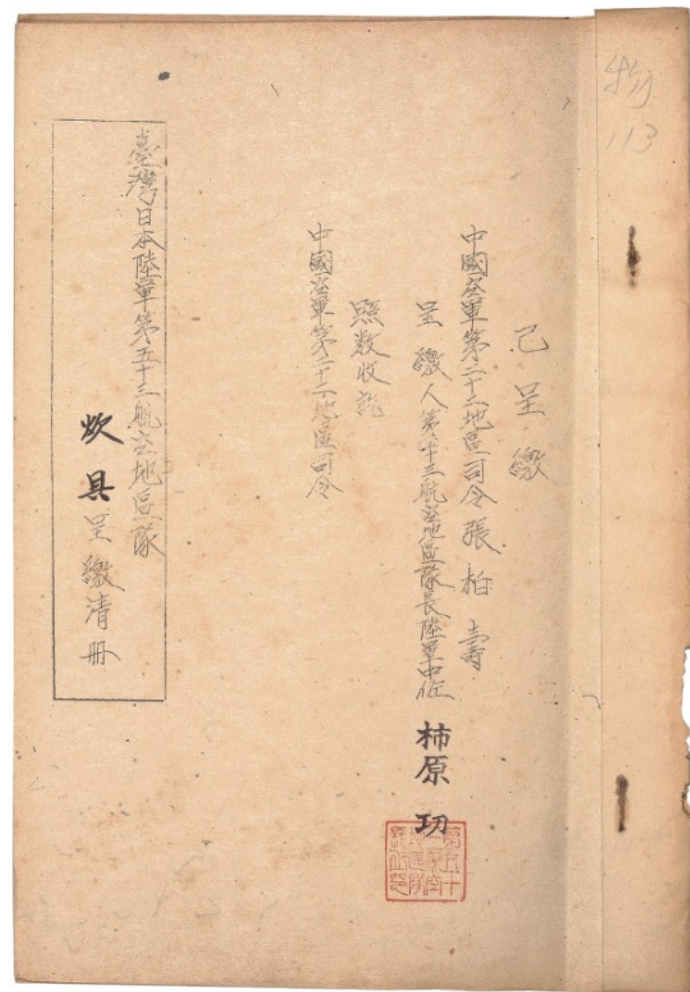 物
113
已呈繳
中國空軍第二十二地區司令張柏壽
呈繳人第五十三航空地區隊長陸軍中佐 柿原 功
照数收訖
中國空軍第二十二地區司令
臺灣日本陸軍第五十三航空地區隊
炊具呈繳清冊